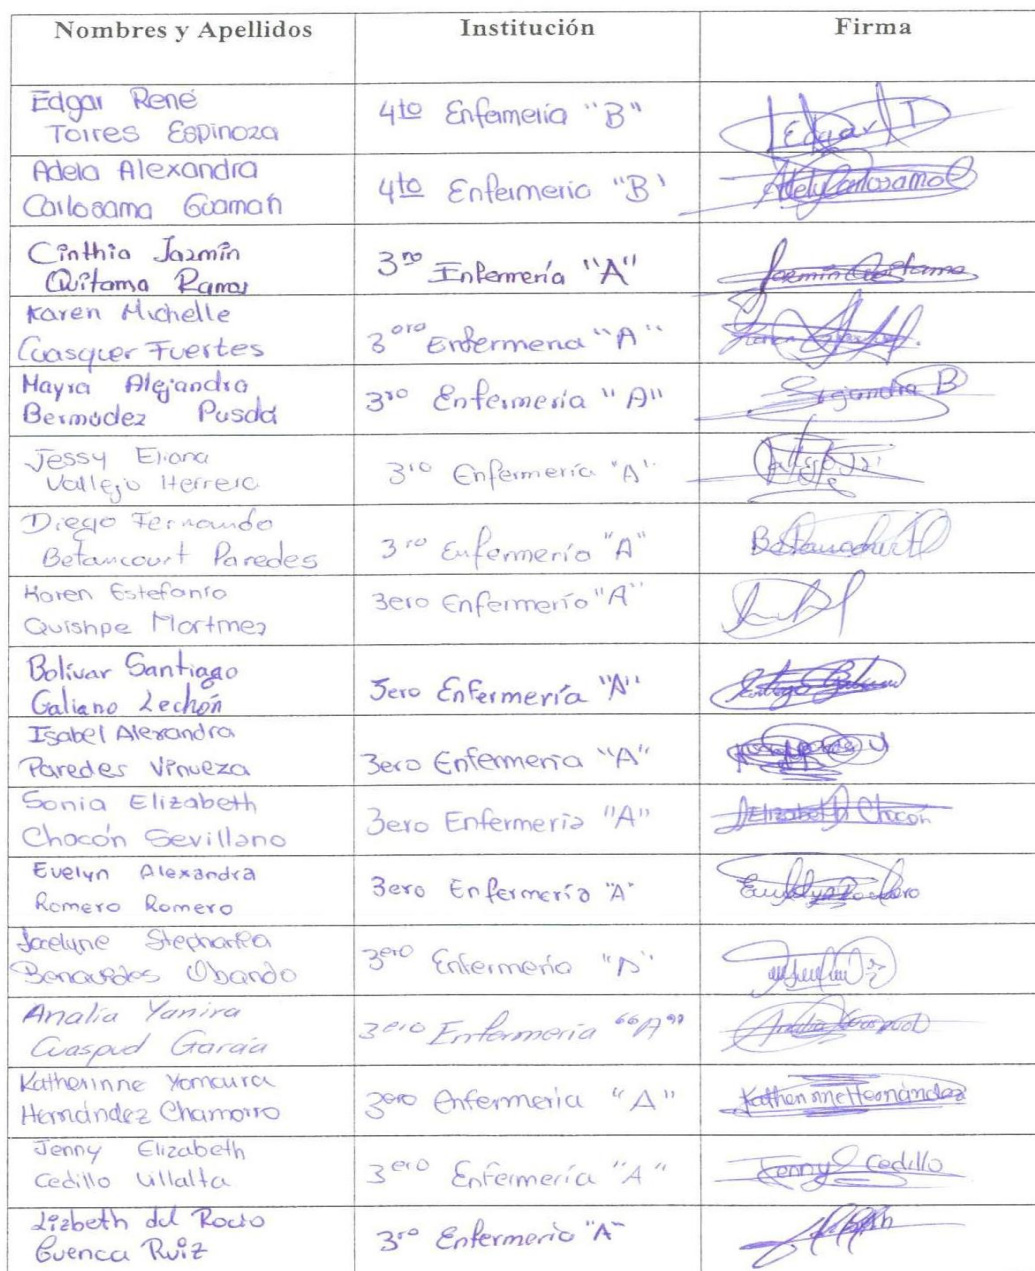 Nombres y Apellidos Institución Firma
Edgar René
Torres Espinoza
4to Enfermería "B"
Edgar T
Adela Alexandra
Carlosama Guamán
4to Enfermería "B"
Adely Carlosama
Cinthia Jazmín
Quitama Ramos
3ro Enfermería "A"
Jazmin Quitama
Karen Michelle
Cuasquer Fuertes
3oro Enfermeria "A"
Karen
Mayra Alejandra
Bermúdez Pusdá
3ro Enfermería "A"
Alejandra B
Jessy Eliana
Vallejo Herrera
3ro Enfermería "A"
Diego Fernando
Betancourt Paredes
3ro Enfermería "A"
Betancourt
Karen Estefanía
Quishpe Martínez
3ero Enfermería "A"
Bolívar Santiago
Galiano Lechón
3ero Enfermería "A"
Santiago Galiano
Isabel Alexandra
Paredes Vinueza
3ero Enfermería "A"
Sonia Elizabeth
Chacón Sevillano
3ero Enfermería "A"
Elizabeth Chacón
Evelyn Alexandra
Romero Romero
3ero Enfermería "A"
Evelyn Romero
Jocelyne Stephanía
Benavides Obando
3ero Enfermería "A"
Analía Yanira
Cuaspud García
3ero Enfermería "A"
Analía Cuaspud
Katherinne Yomaira
Hernández Chamorro
3ero Enfermeria "A"
Katherinne Hernández
Jenny Elizabeth
Cedillo Villalta
3ero Enfermería "A"
Jenny Cedillo
Lizbeth del Rocío
Cuenca Ruiz
3ro Enfermería "A"